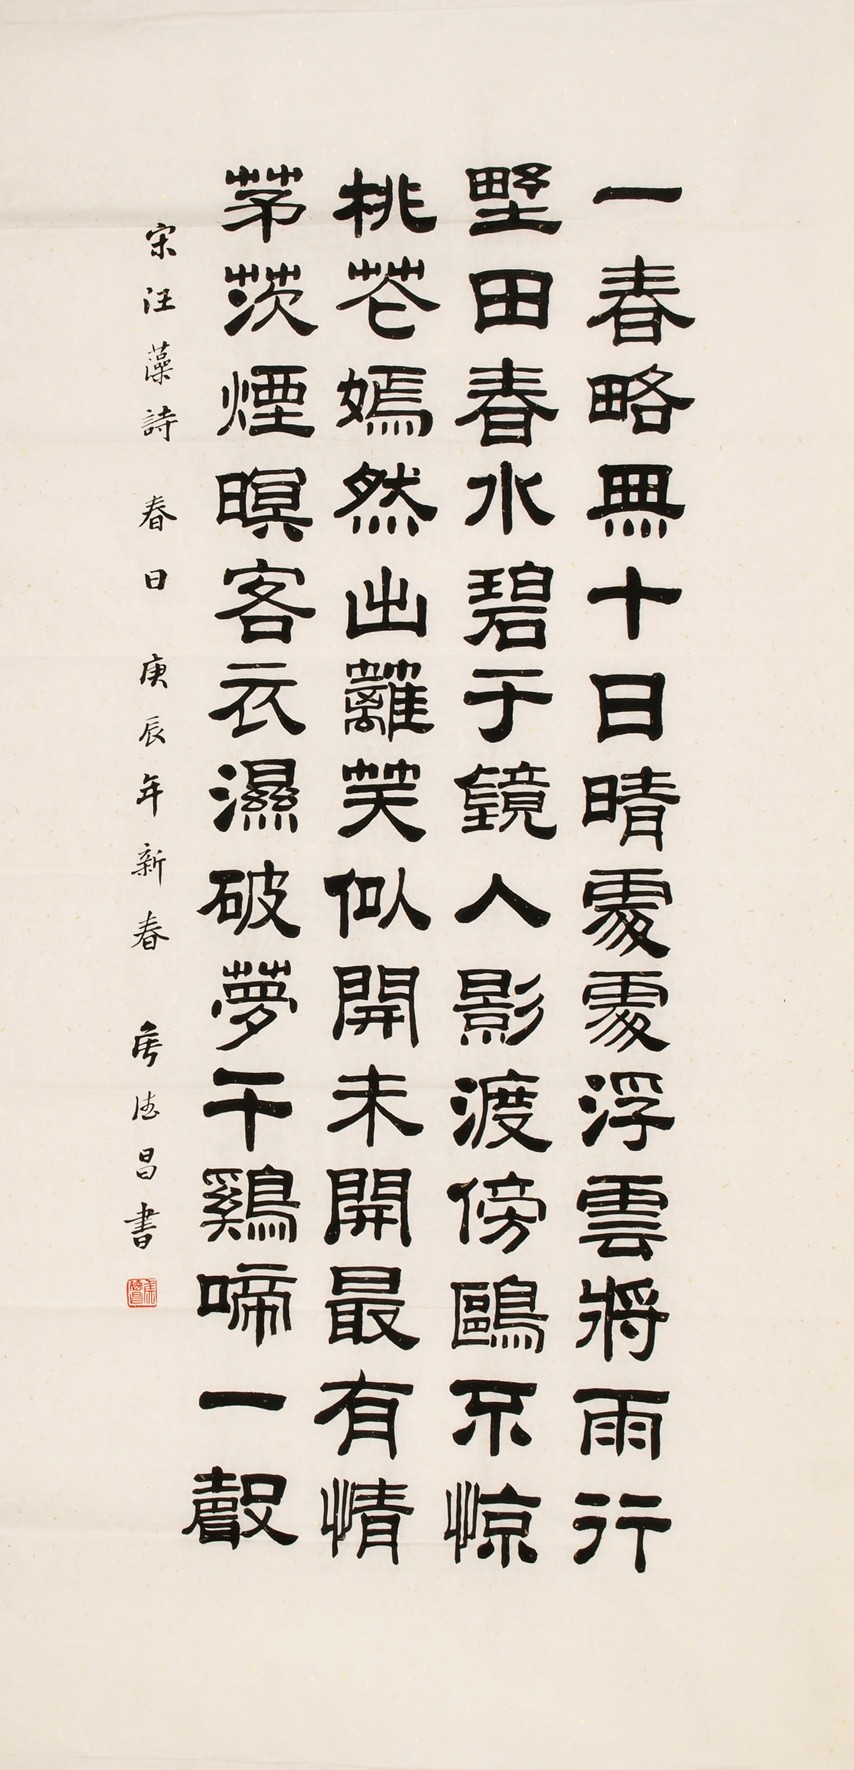 一春略無十日晴處處浮雲將雨行
野田春水碧于鏡人影渡傍鷗不惊
桃花嫣然出蘺笑似開未開最有情
茅茨煙暝客衣濕破夢午鷄啼一聲
宋汪藻詩 春日 庚辰年新春 德昌書